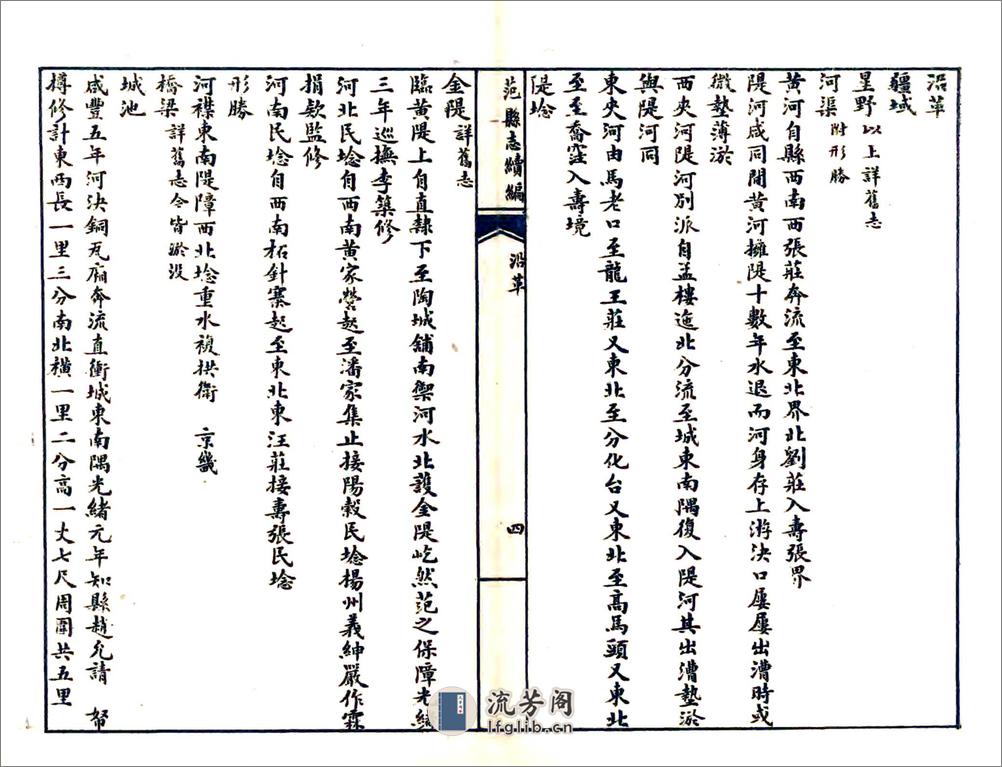 沿革
疆域
星野以上詳舊志
河渠附形勝
黄河自縣西南西張莊奔流至東北界北劉莊入壽張界
隄河咸同間黄河擁隄十數年水退而河身存上游決口屢屢出漕時或
微墊薄淤
西夾河隄河别派自孟樓迤北分流至城東南隅復入隄河其出漕墊淤
與隄河同
東夾河由馬老口至龍王莊又東北至分化台又東北至高馬頭又東北
至至喬窪入壽境
隄埝
范縣志續編
沿革
四
金隄詳舊志
臨黄隄上自直隸下至陶城舖南禦河水北護金隄屹然范之保障光緒
三年巡撫李築修
河北民埝自西南黄家營起至潘家集止接陽穀民埝楊州義紳嚴作霖
捐欵監修
河南民埝自西南柘針寨起至東北東汪莊接壽張民埝
形勝
河襟東南隄障西北埝重水複拱衞 京畿
橋梁詳舊志今皆淤没
城池
咸豐五年河決銅瓦廂奔流直衝城東南隅光緒元年知縣趙允請 帑
樽修計東西長一里三分南北横一里二分高一丈七尺周圍共五里
流芳阁
lfglib.cn